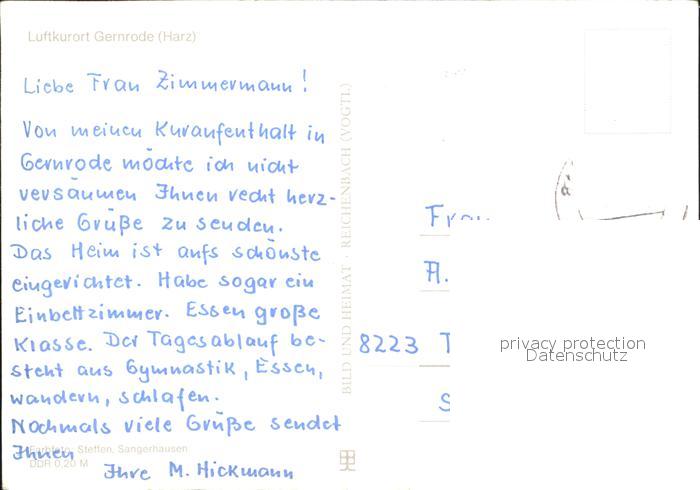 Luftkurort Gernrode (Harz)
Liebe Frau Zimmermann!
Von meinen Kuraufenthalt in
Gernrode möchte ich nicht
versäumen Ihnen recht herz-
liche Grüße zu senden.
Das Heim ist aufs schönste
eingerichtet. Habe sogar ein
Einbettzimmer. Essen große
Klasse. Der Tagesablauf be-
steht aus Gymnastik, Essen,
wandern, schlafen.
Nochmals viele Grüße sendet
Ihnen
Ihre M. Hickmann
Farbfoto: Steffen, Sangerhausen
DDR 0,20 M
BILD UND HEIMAT · REICHENBACH (VOGTL)
Frau
A.
8223 T
S
privacy protection
Datenschutz